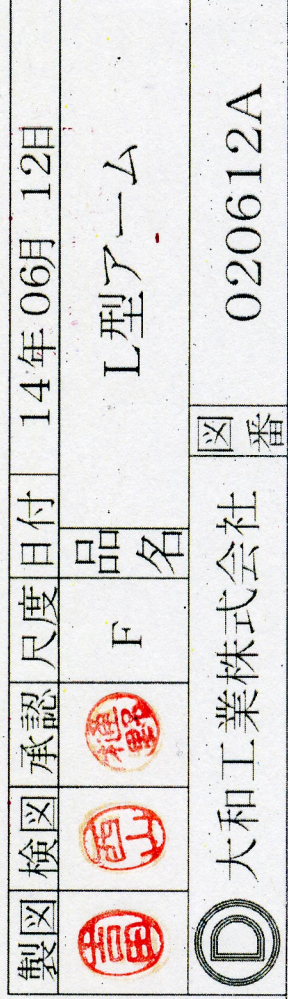 製図 検図 承認 尺度 日付 14年06月 12日
吉田 西山 植野 F 品名 L型アーム
D 大和工業株式会社 図番 020612A